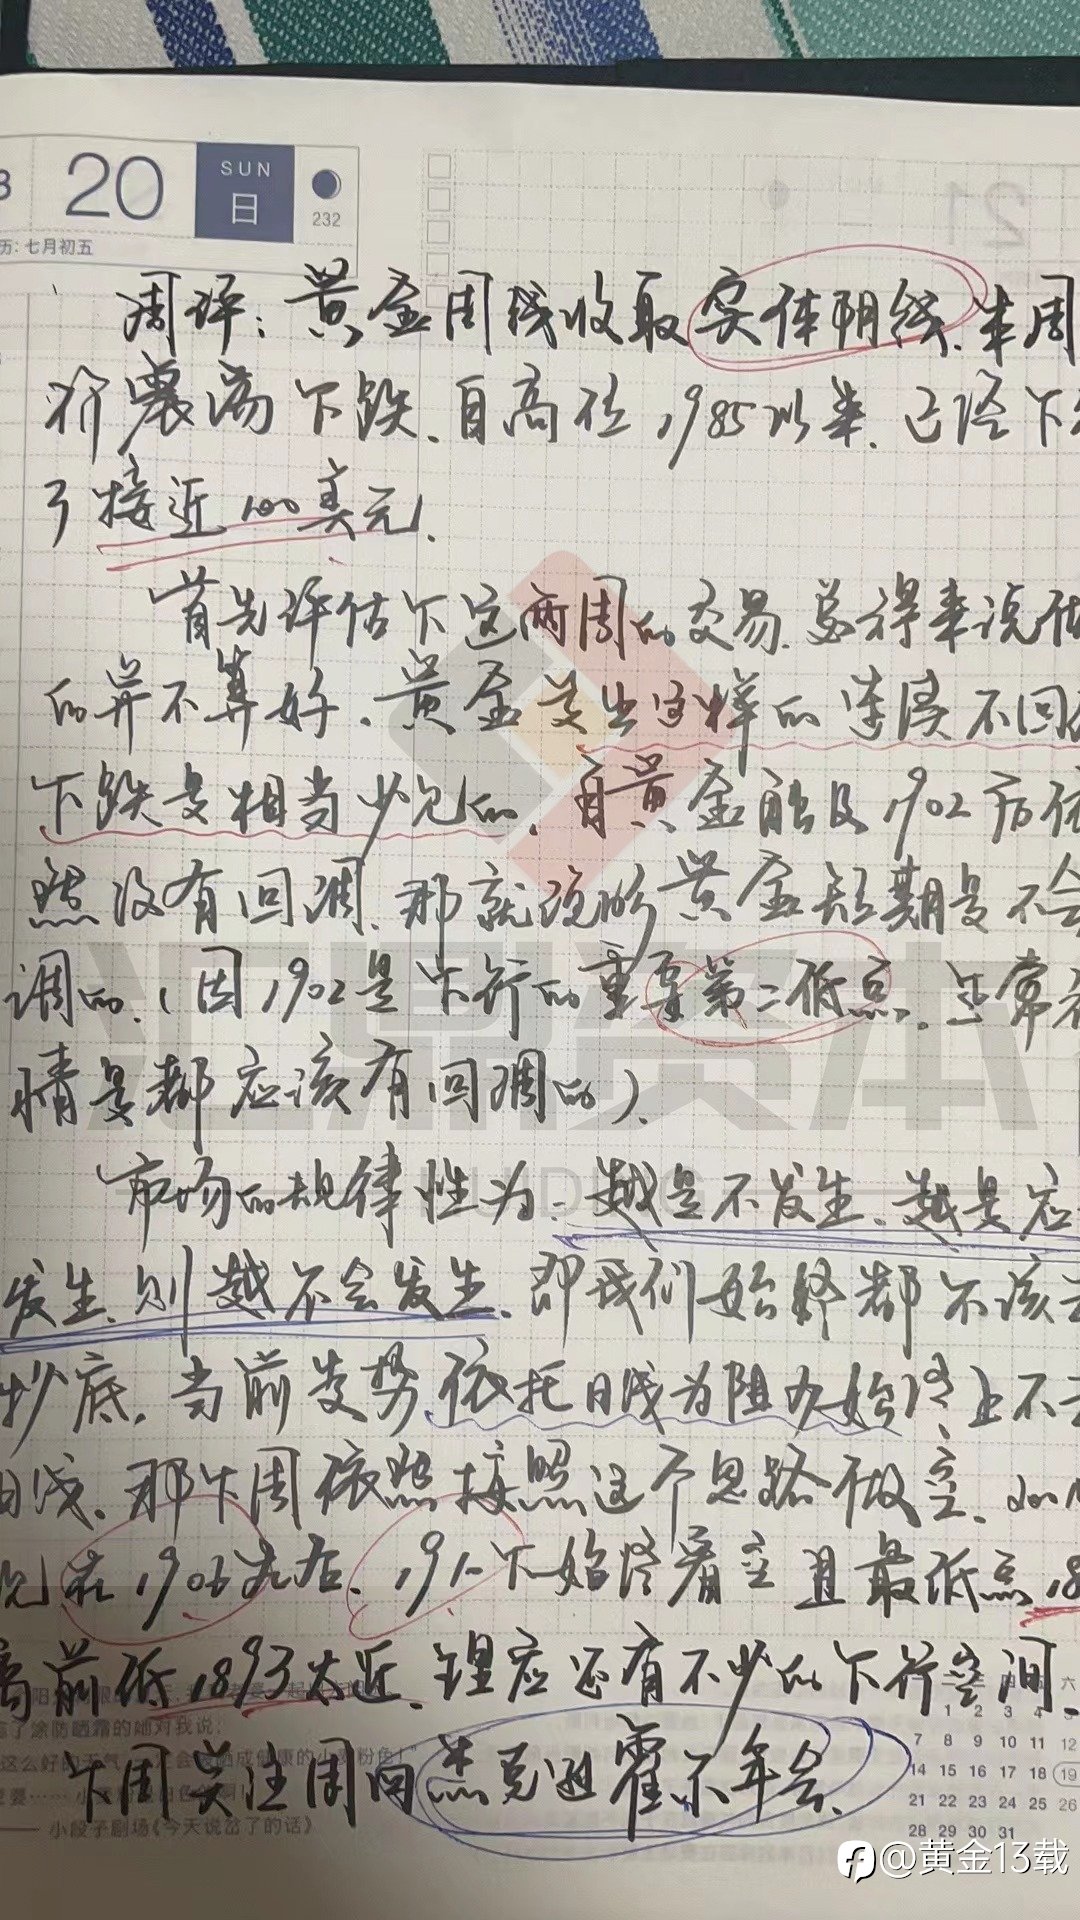 20
SUN
日
232
历: 七月初五
21
周评: 黄金周线收取实体阴线. 本周
下跌. 自高位1985以来. 已经下
了接近100美元.
首先评估下这两周的交易. 总得来说做
的并不算好. 黄金发出这样的连续不回
下跌是相当少见的. 自黄金触及1902后依
然没有回调. 那就说明黄金短期是不会
调的. (因1902是下行的重要第二低点. 正常
情是都应该有回调的).
市场的规律性为: 越是不发生. 越是应
发生. 则越不会发生. 即我们始终都不该去
抄底. 当前走势依托日线为阻力始终上不去
日线. 那下周依然按照这个思路做空.
在1906左右. 191 下始终看空且最低点18
离前低1893太近. 理应还有不少的下行空间.
下周关注周 杰克逊霍尔年会.
汇鼎资本
HUIDING
小段子剧场《今天说岔了的话》
1 2 3 4
7 8 9 10 11 12
14 15 16 17 18 19
21 22 23 24 25 26
28 29 30 31
@黄金13载